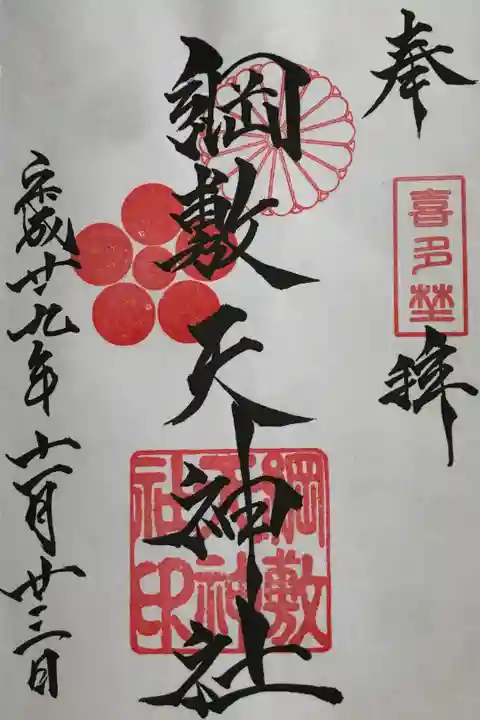 奉拝
喜多埜
綱敷天神社
綱敷天神社印
平成廿九年十一月廿三日